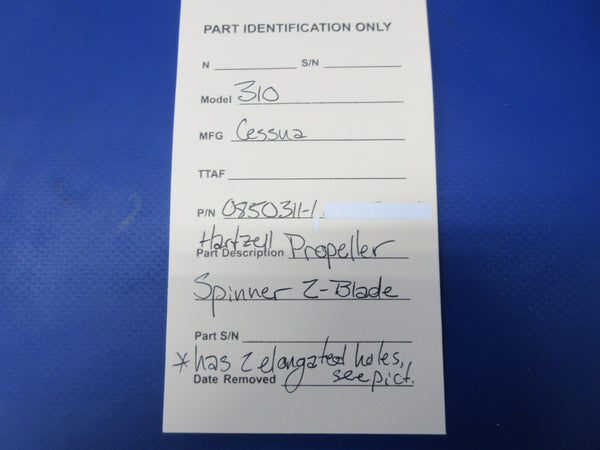 PART IDENTIFICATION ONLY
N S/N
Model 310
MFG Cessna
TTAF
P/N 0850311-1,
Hartzell
Part Description Propeller
Spinner 2-Blade
Part S/N
*has 2 elongated holes,
Date Removed see pict.